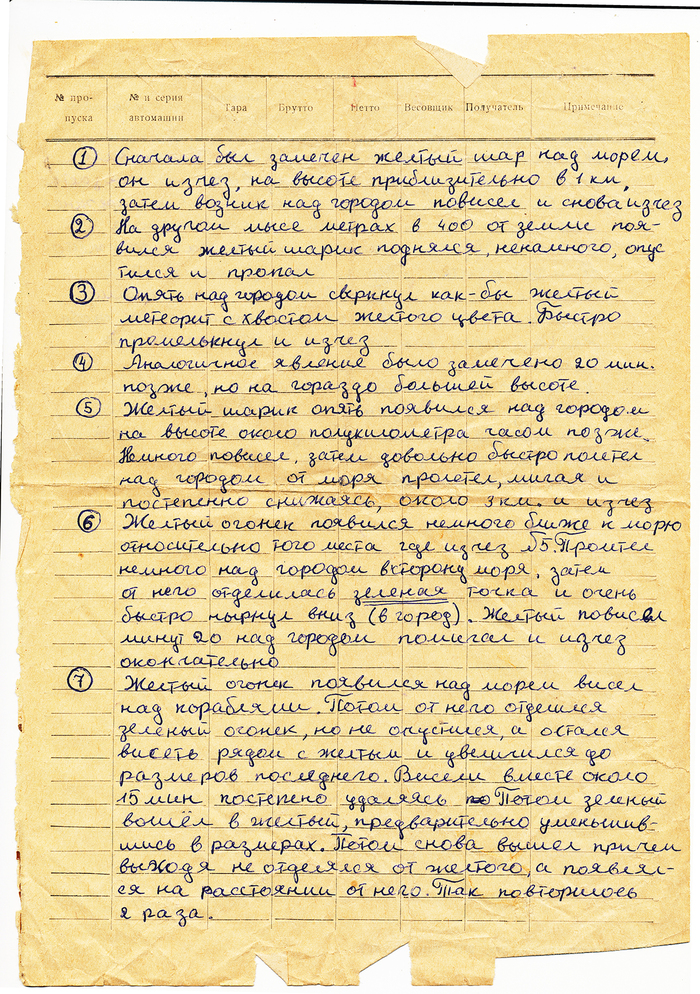 № про-
пуска
№ и серия
автомашин
Тара
Брутто
Нетто
Весовщик
Получатель
Примечание
1 Сначала был замечен желтый шар над морем,
он изчез, на высоте приблизительно в 1 км,
затем возник над городом повисел и снова изчез
2 На другом мысе метрах в 400 от земли поя-
вился желтый шарик поднялся, ненамного, опус
тился и пропал
3 Опять над городом сверкнул как-бы желтый
метеорит с хвостом желтого цвета. Быстро
промелькнул и изчез
4 Аналогичное явление было замечено 20 мин.
позже, но на гораздо большей высоте.
5 Желтый шарик опять появился над городом
на высоте около полукилометра часом позже.
Немного повисел, затем довольно быстро полетел
над городом от моря пролетел, мигая и
постепенно снижаясь, около 3 км. и изчез
6 Желтый огонек появился немного ближе к морю
относительно того места где изчез №5. Пролтел
немного над городом в сторону моря, затем
от него отделилась зеленая точка и очень
быстро нырнул вниз (в город). Желтый повисел
минут 20 над городом помигал и изчез
окончательно
7 Желтый огонек появился над морем висел
над кораблями. Потом от него отделился
зеленый огонек, но не опустился, а остался
висеть рядом с желтым и увеличился до
размеров последнего. Висели вместе около
15 мин постепено удаляясь по Потом зеленый
вошёл в желтый, предварительно уменьшив-
шись в размерах. Потом снова вышел причем
выходя не отделялся от желтого, а появлял-
ся на расстоянии от него. Так повторилось
2 раза.